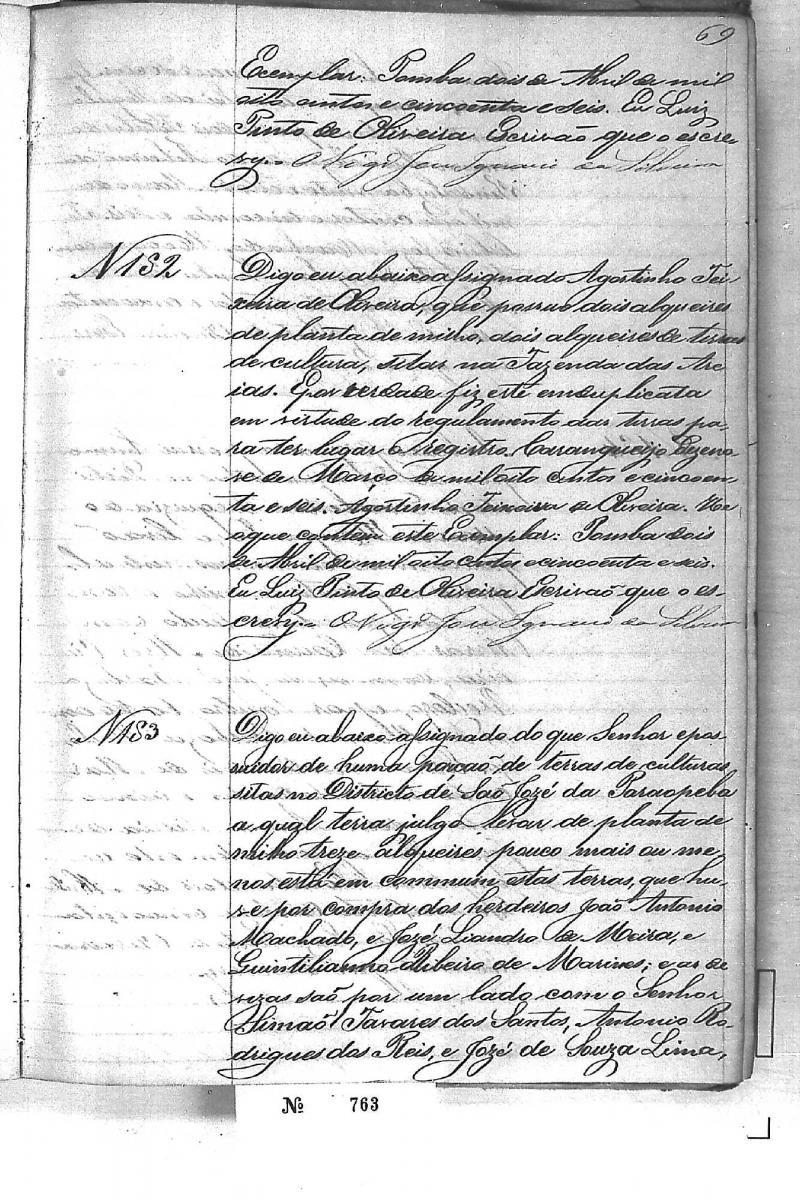 69
Exemplar. Pomba dois de Abril de mil
oito centos e cincoenta e seis. Eu Luiz
Pinto de Oliveira Escrivaõ que o escre-
vy. O Vigr.º Jose Ignacio da Silveira
N 182
Digo eu abaixo assignado Agostinho Tei-
xeira de Oliveira, que possuo dois alqueires
de planta de milho, dois alqueires de terras
de cultura, sitas na Fazenda das Are
ias. E por verdade fiz este em duplicata
em virtude do regulamento das terras pa-
ra ter lugar o registro. Carangueijo
se de Março de mil oito centos e cincoen-
ta e seis. Agostinho Teixeira de Oliveira.
aque contem este Exemplar: Pomba dois
de Abril de mil oito centos e cincoenta e seis.
Eu Luiz Pinto de Oliveira Escrivaõ que o es-
crevy. O Vigr.º Jose Ignacio da Silveira
N 183
Digo eu abaixo assignado do que Senhor e pos-
suidor de huma porçaõ de terras de culturas
sitas no Districto de Saõ Jozé da Paraopeba
a qual terra julgo levar de planta de
milho treze alqueires pouco mais ou me-
nos está em commum estas terras, que hu-
ve por compra dos herdeiros Joaõ Antonio
Machado, e Jozé Liandro de Meira, e
Guintilianno Ribeiro de Marines; e as de
vizas saõ por um lado com o Senhor
Simaõ Tavares dos Santos, Antonio Ro-
drigues dos Reis, e Jozé de Souza Lima,
Nº 763